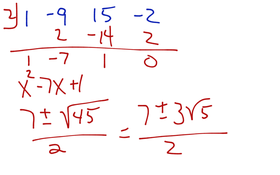 2) 1 -9 15 -2
2 -14 2
1 -7 1 0
x² - 7x + 1
7 ± √45 / 2 = 7 ± 3√5 / 2